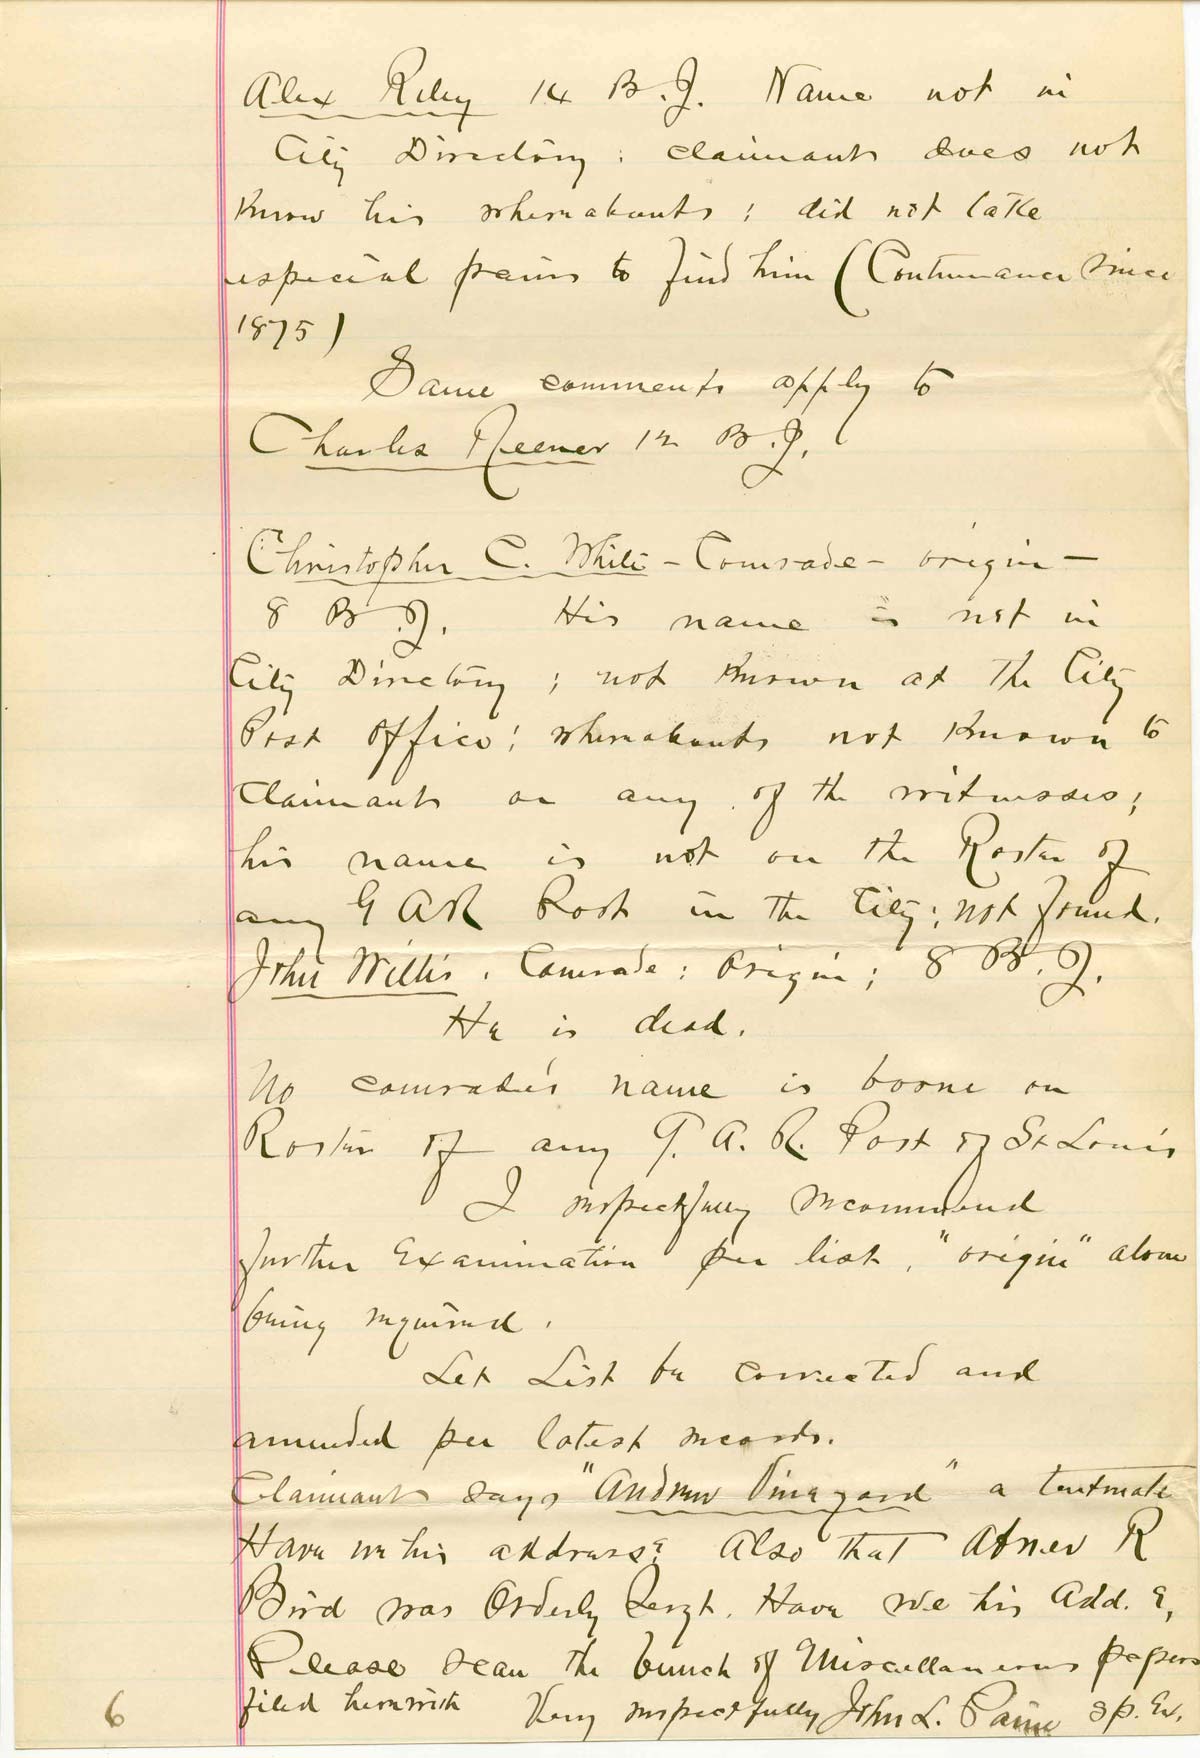 Alex Riley 14 B.J. Name not in
City Directory; claimant does not
know his whereabouts; did not take
especial pains to find him (Continuance since
1875)
Same comments apply to
Charles Keener 12 B.J.
Christopher C. White - Comrade - origin -
8 B.J. His name is not in
City Directory; not known at the City
Post Office; whereabouts not known to
claimant or any of the witnesses;
his name is not on the Roster of
any G A R Post in the City; not found.
John Willis. Comrade: Origin; 8 B.J.
He is dead.
No comrade's name is borne on
Roster of any G. A. R. Post of St Louis
I respectfully recommend
further Examination per list, "origin" alone
being required.
Let List be corrected and
amended per latest records.
Claimant says "Andrew Vineyard" a tentmate
Have we his address? Also that Abner R
Bird was Orderly Sergt. Have we his Add. &,
Please scan the bunch of Miscellaneous papers
filed herewith Very respectfully John L. Paine Sp. Ex.
6